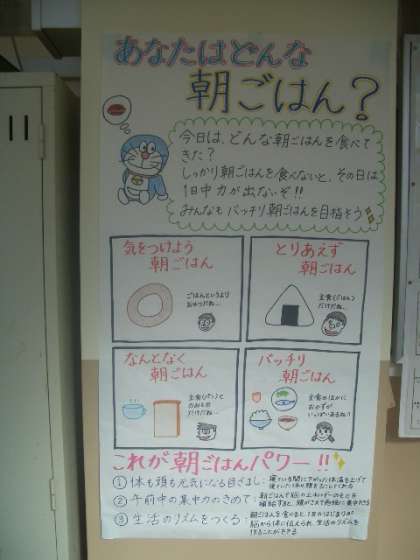 あなたはどんな
朝ごはん?
今日は、どんな朝ごはんを食べて
きた?
しっかり朝ごはんを食べないと、その日は
1日中力が出ないぞ!!
みんなもバッチリ朝ごはんを目指そう!!
気をつけよう
朝ごはん
ごはんというより
おやつだね…
とりあえず
朝ごはん
主食(ごはん)
だけだね…
なんとなく
朝ごはん
主食(パン)と
のみもの
だけだね…
バッチリ
朝ごはん
主食のほかに
おかずが
いっぱいあるね!
これが朝ごはんパワー!!
① 体も頭も元気になる目ざまし:
② 午前中の集中力のきめて:
③ 生活のリズムをつくる: